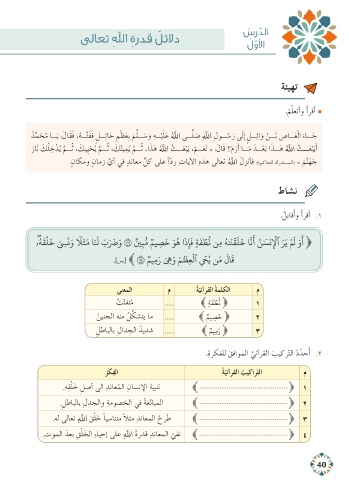 الدّرسُ
الأوّلُ
دلائلُ قدرة اللهِ تعالى
تهيئة
أقرأ وأتعلّمُ:
جَاءَ الْعَاصِ بْنُ وَائِلٍ إِلَى رَسُولِ اللهِ صَلَّى اللهُ عَلَيْهِ وَسَلَّمَ بِعَظْمٍ حَائِلٍ فَفَتَّهُ، فَقَالَ: يَا مُحَمَّدُ
أَيَبْعَثُ اللهُ هَذَا بَعْدَ مَا أَرَمَ؟ قَالَ: « نَعَمْ، يَبْعَثُ اللهُ هَذَا، ثُمَّ يُمِيتُكَ، ثُمَّ يُحْيِيكَ، ثُمَّ يُدْخِلُكَ نَارَ
جَهَنَّمَ » (المستدرك للحاكم) فأنزلَ اللهُ تعالى هذهِ الآياتِ ردّاً على كلِّ معاندٍ في أيِّ زمانٍ ومكانٍ.
نشاط
١. أقرأ وأقابلُ:
﴿ أَوَلَمْ يَرَ ٱلْإِنسَٰنُ أَنَّا خَلَقْنَٰهُ مِن نُّطْفَةٍ فَإِذَا هُوَ خَصِيمٌ مُّبِينٌ ۝ وَضَرَبَ لَنَا مَثَلًا وَنَسِىَ خَلْقَهُۥ
قَالَ مَن يُحْىِ ٱلْعِظَٰمَ وَهِىَ رَمِيمٌ ۝ ﴾ [يس].
م الكلمةُ القرآنيّةُ م المعنى
١ ﴿ نُطْفَةٍ ﴾ ..... مُتفتّتٌ
٢ ﴿ خَصِيمٌ ﴾ ..... ما يتشكّلُ منه الجنينُ
٣ ﴿ رَمِيمٌ ﴾ ..... شديدُ الجدالِ بالباطلِ
٢. أحدّدُ التّركيبَ القرآنيَّ الموافقَ للفكرةِ:
م التّراكيبُ القرآنيّةُ الفِكَرُ
١ ﴿ .............................. ﴾ تنبيهُ الإنسانِ المُعاندِ إلى أصلِ خَلْقِه.
٢ ﴿ .............................. ﴾ المبالغةُ في الخصومةِ والجدلِ بالباطلِ.
٣ ﴿ .............................. ﴾ طرحُ المعاندِ مثلاً متناسياً خَلْقَ اللهِ تعالى له.
٤ ﴿ .............................. ﴾ نفيُ المعاندِ قدرةَ اللهِ على إحياءِ الخَلْقِ بعدَ الموتِ.
40